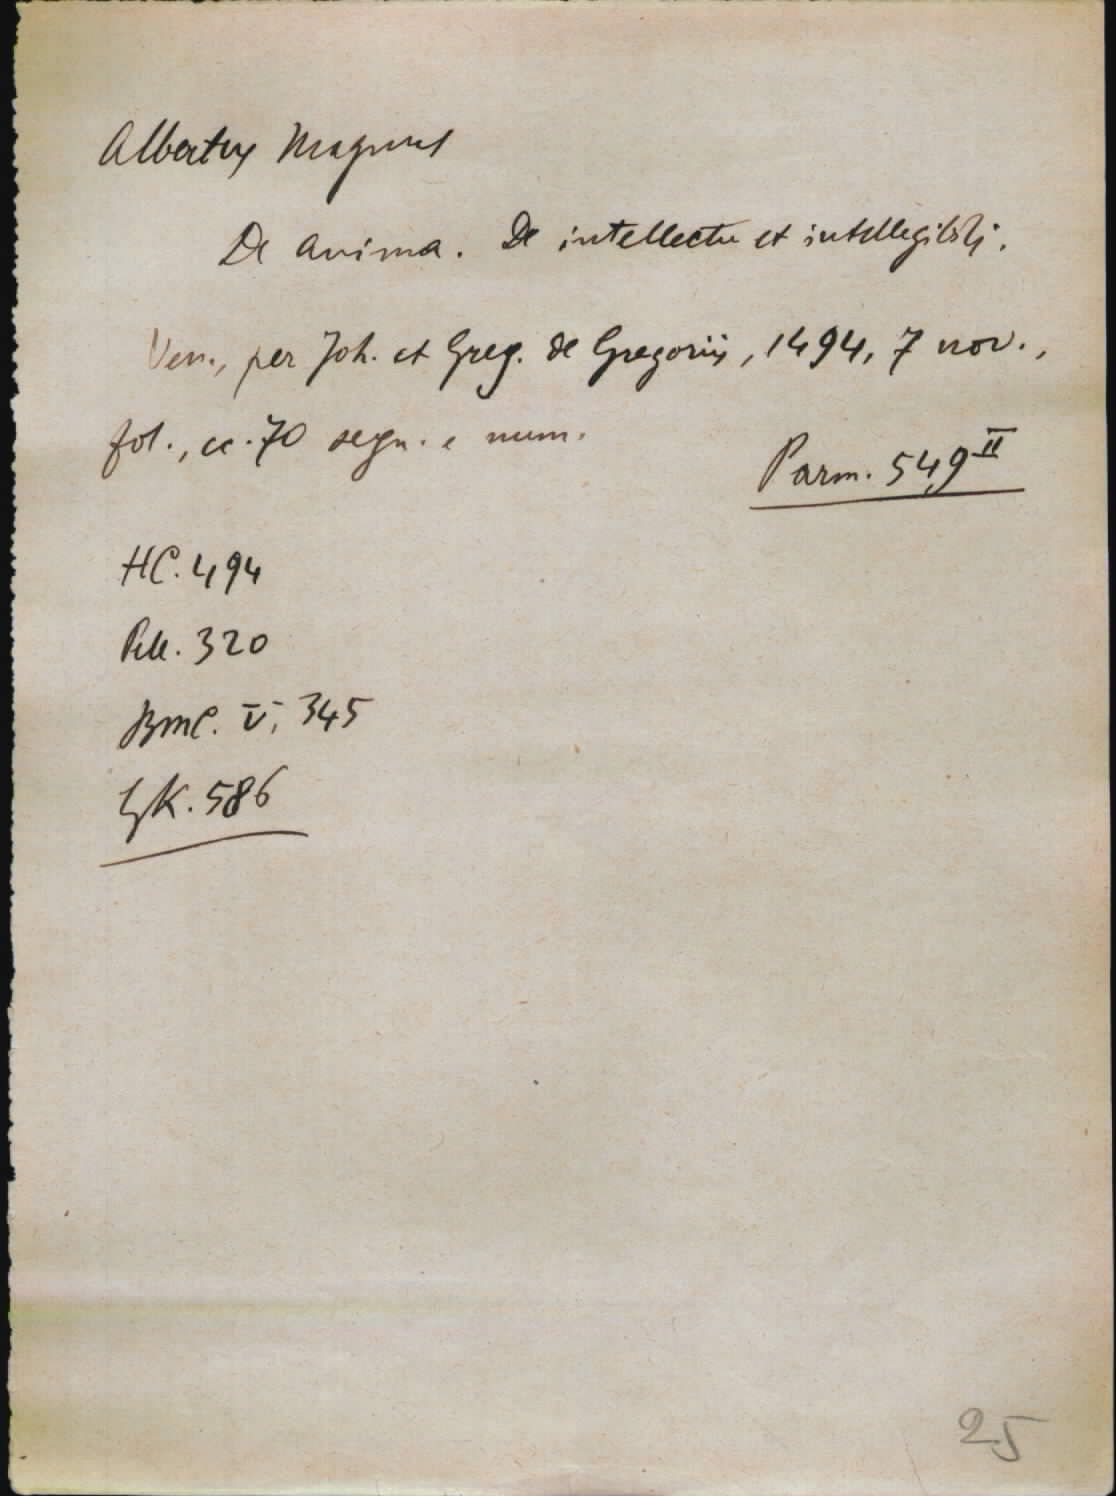 Albertus Magnus
De anima. De intellectu et intellegibili.
Ven., per Joh. et Greg. de Gregoriis, 1494, 7 nov.,
fol., cc. 70 segn. e num.
Parm. 549 II
HC. 494
Pell. 320
BMC. V, 345
GK. 586
25